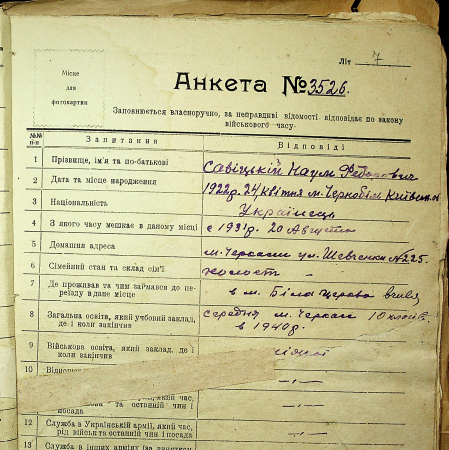 Літ 7
Місце
для
фотокартки
Анкета № 3526.
Заповнюється власноручно, за неправдиві відомості відповідає по закону
військового часу.
№№ п-п Запитання Відповіді
1 Прізвище, ім'я та по-батькові Савіцький Наум Федорович
2 Дата та місце народження 1922 р. 24 квітня м. Чорнобіль
3 Національність Українець
4 З якого часу мешкає в даному місці с 1931 р. 20 Августа
5 Домашня адреса м. Черкаси ул. Шевченка № 225.
6 Сімейний стан та склад сім'ї холост –
7 Де проживав та чим займався до пе-
реїзду в дане місце в м. Біла Церква
8 Загальна освіта, який учбовий заклад,
де і коли закінчив середня м. Черкаси 10 класів
в 1940 р.
9 Військова освіта, який заклад, де і
коли закінчив
10
армії, який час,
та останній чин і
посада
12 Служба в Українській армії, який час,
рід військ та останній чин і посада
13 Служба в інших арміях